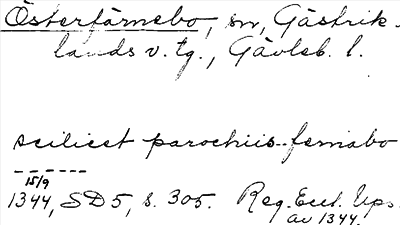 Österfärnebo, sn, Gästrik-
lands v. tg., Gävleb. l.
scilicet parochiis fernabo
15/9
1344, SD 5, s. 305. Reg. Eccl. Ups.
av 1344.